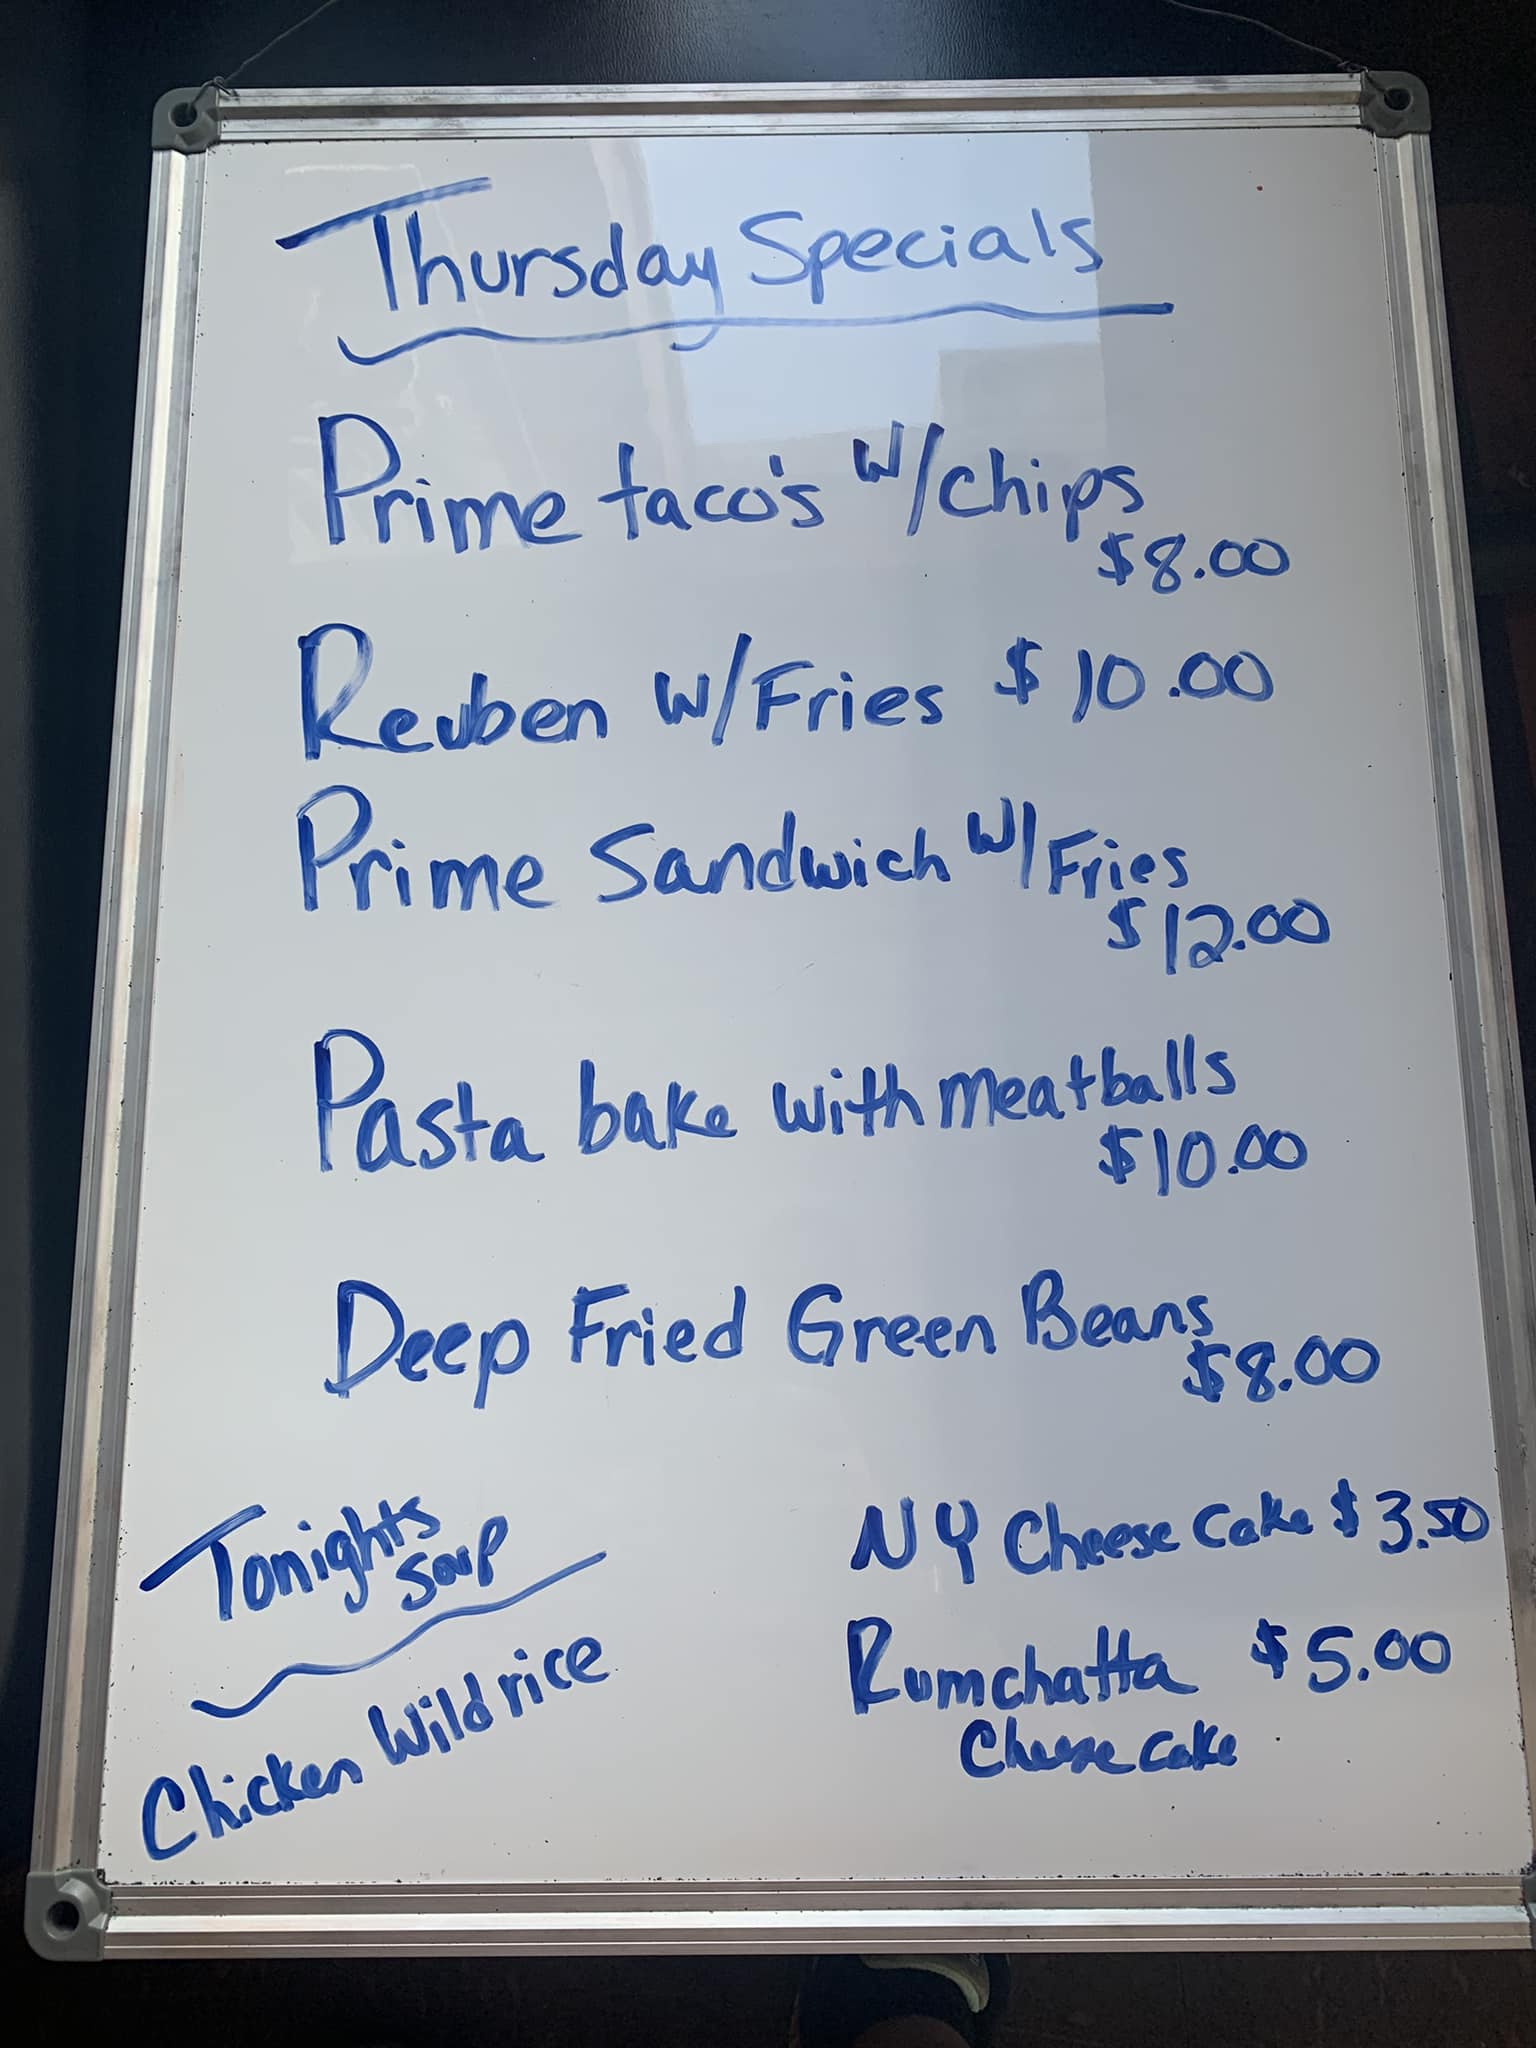 Thursday Specials
Prime taco's w/chips
$8.00
Reuben w/Fries $10.00
Prime Sandwich w/Fries
$12.00
Pasta bake with meatballs
$10.00
Deep Fried Green Beans
$8.00
Tonights
Soup
Chicken Wild rice
NY Cheese Cake $3.50
Rumchatta $5.00
Cheese cake